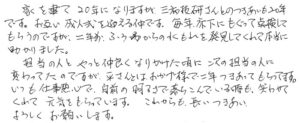 家を建て20年になりますが三和技研さんとのつきあいも20年
です。お互い成人式を迎える仲です。毎年床下にもぐって点検して
もらうのですが、二年前、ふろ場からの水もれを発見してくれて本当に
助かりました。
担当の人とやっと仲良くなりかけた頃に二才の担当の人に
変わってたのですが、さんとはおかげ様で二年つきあってもらってます。
いつも仕事熱心で、自前の明るさで落ちこんでいる時も、笑わせ
てくれて元気をもらっています。これからも、長いつきあい
よろしくお願いします。